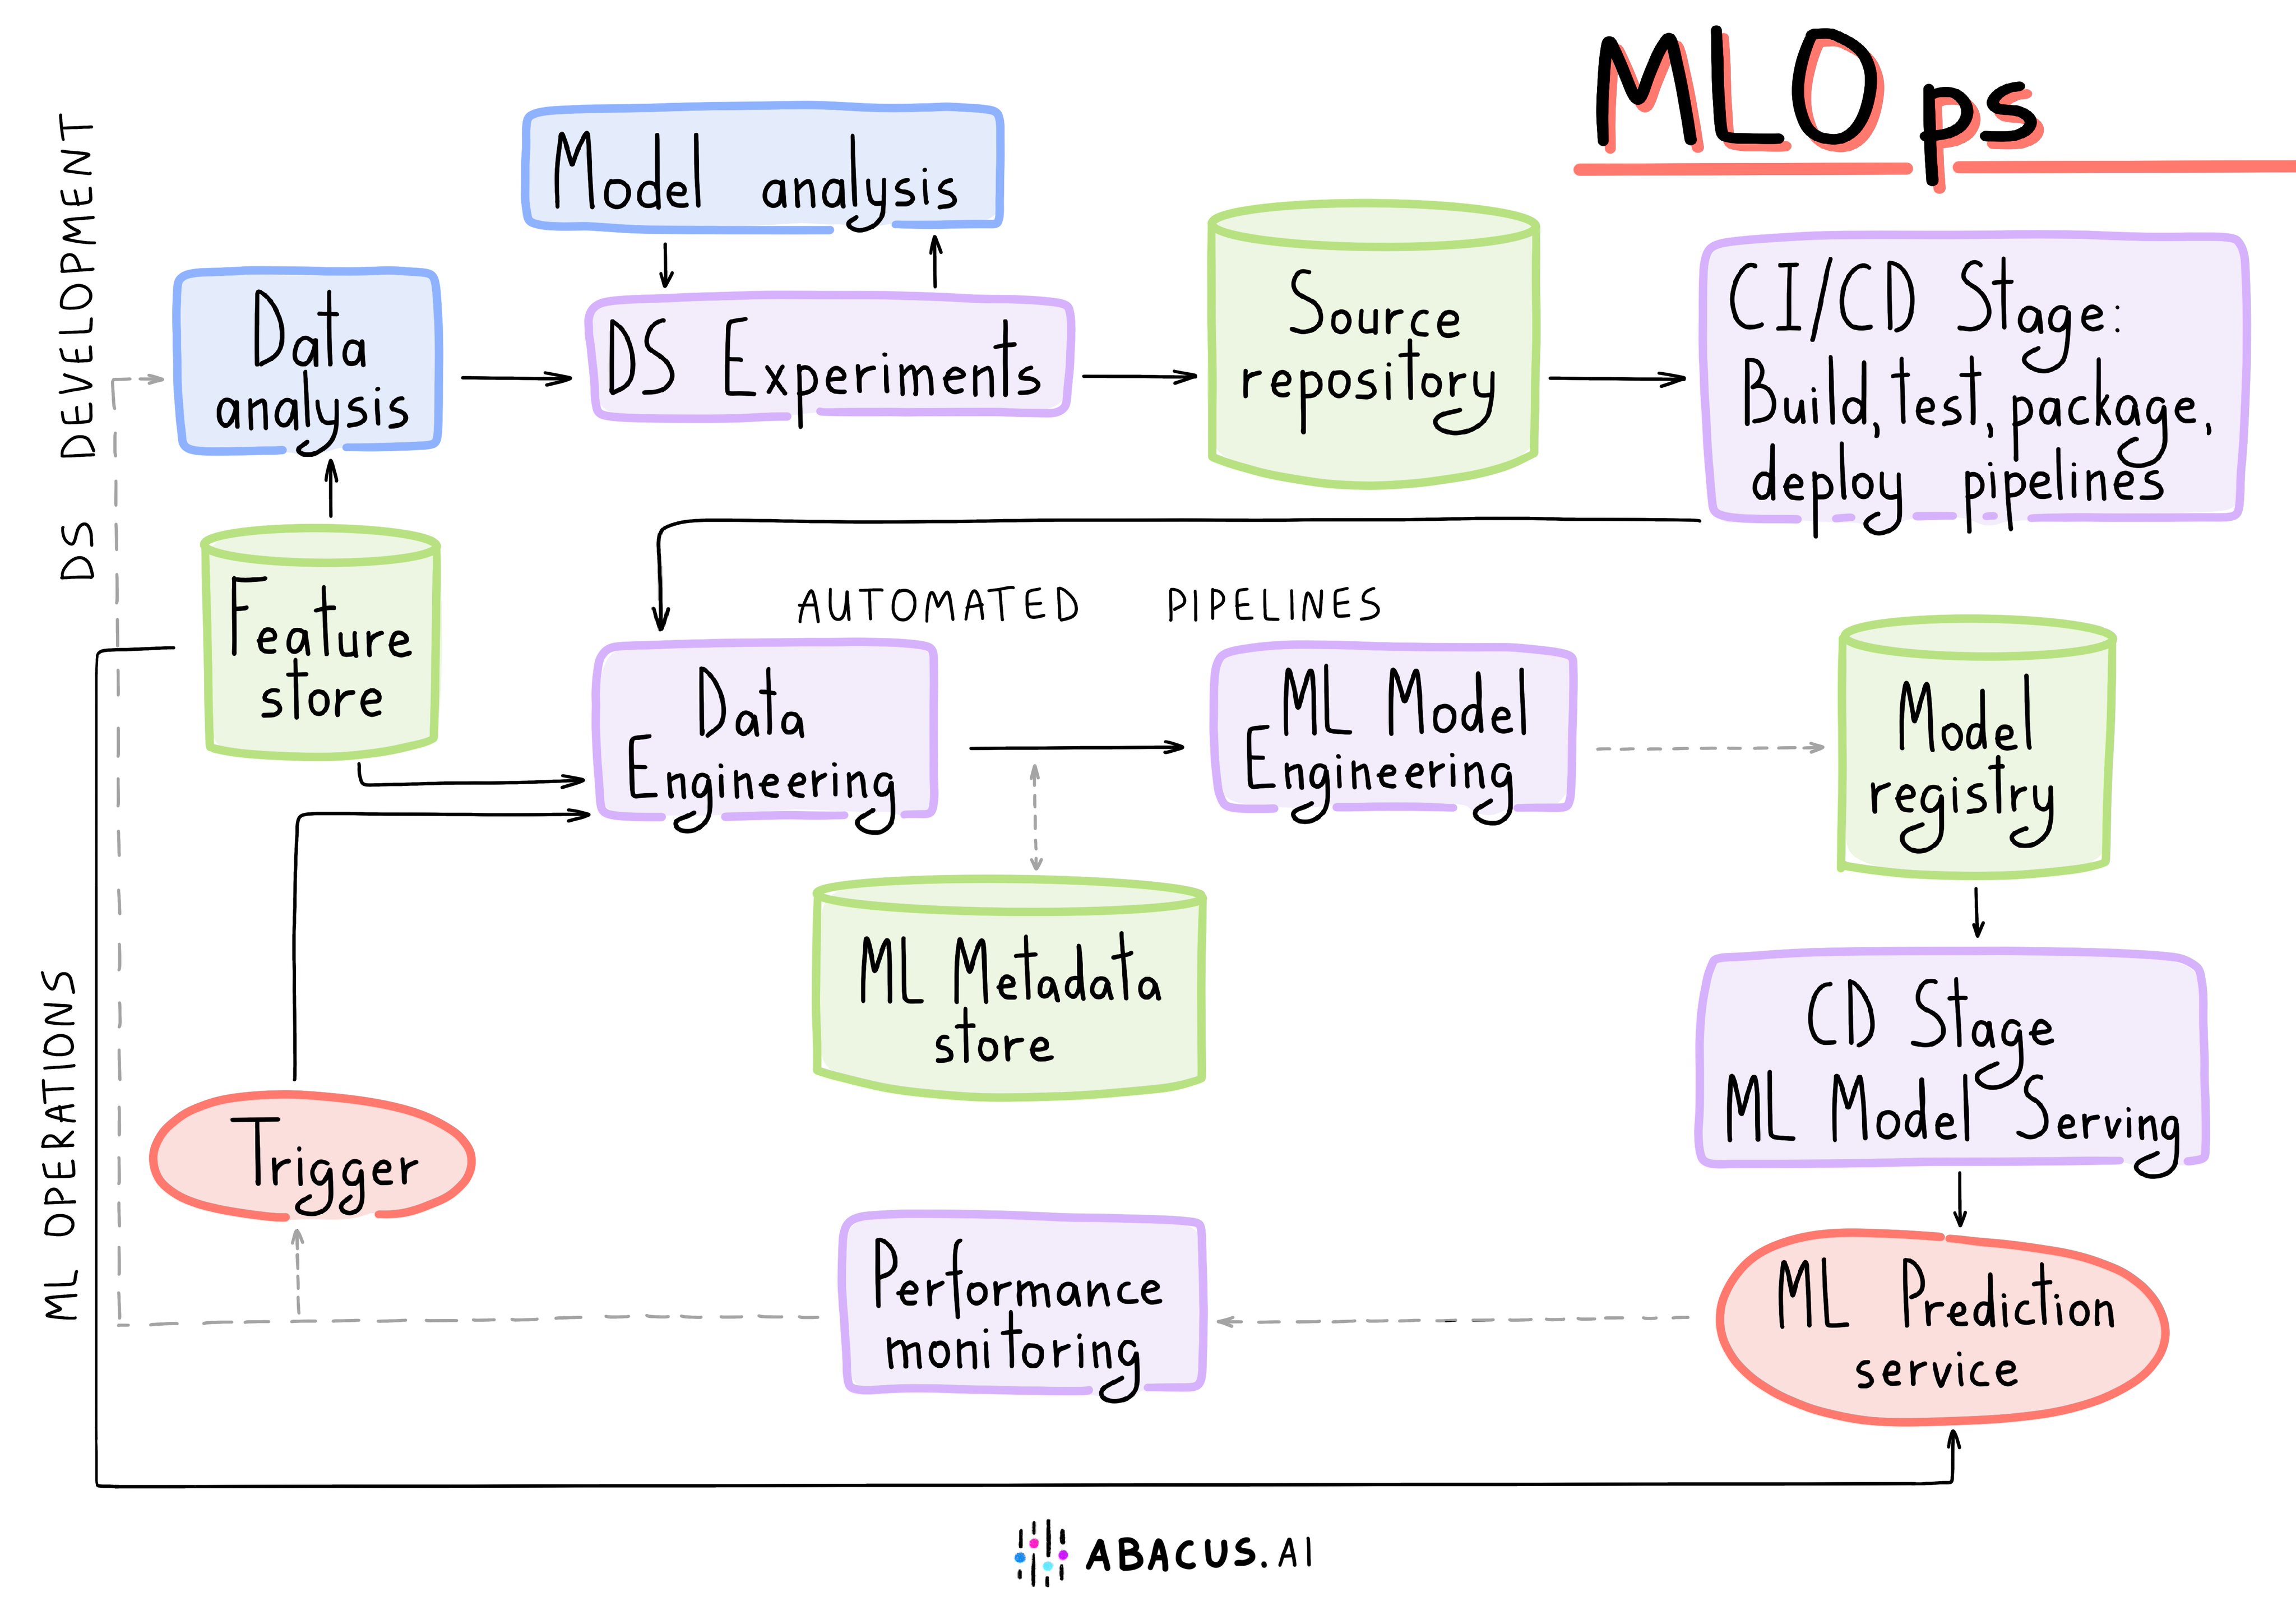 MLOps
DS DEVELOPMENT
Model analysis
Data
analysis
DS Experiments
Source
repository
CI/CD Stage:
Build, test, package,
deploy pipelines
Feature
store
AUTOMATED PIPELINES
Data
Engineering
ML Model
Engineering
Model
registry
ML Metadata
store
CD Stage
ML Model Serving
ML OPERATIONS
Trigger
Performance
monitoring
ML Prediction
service
ABACUS.AI